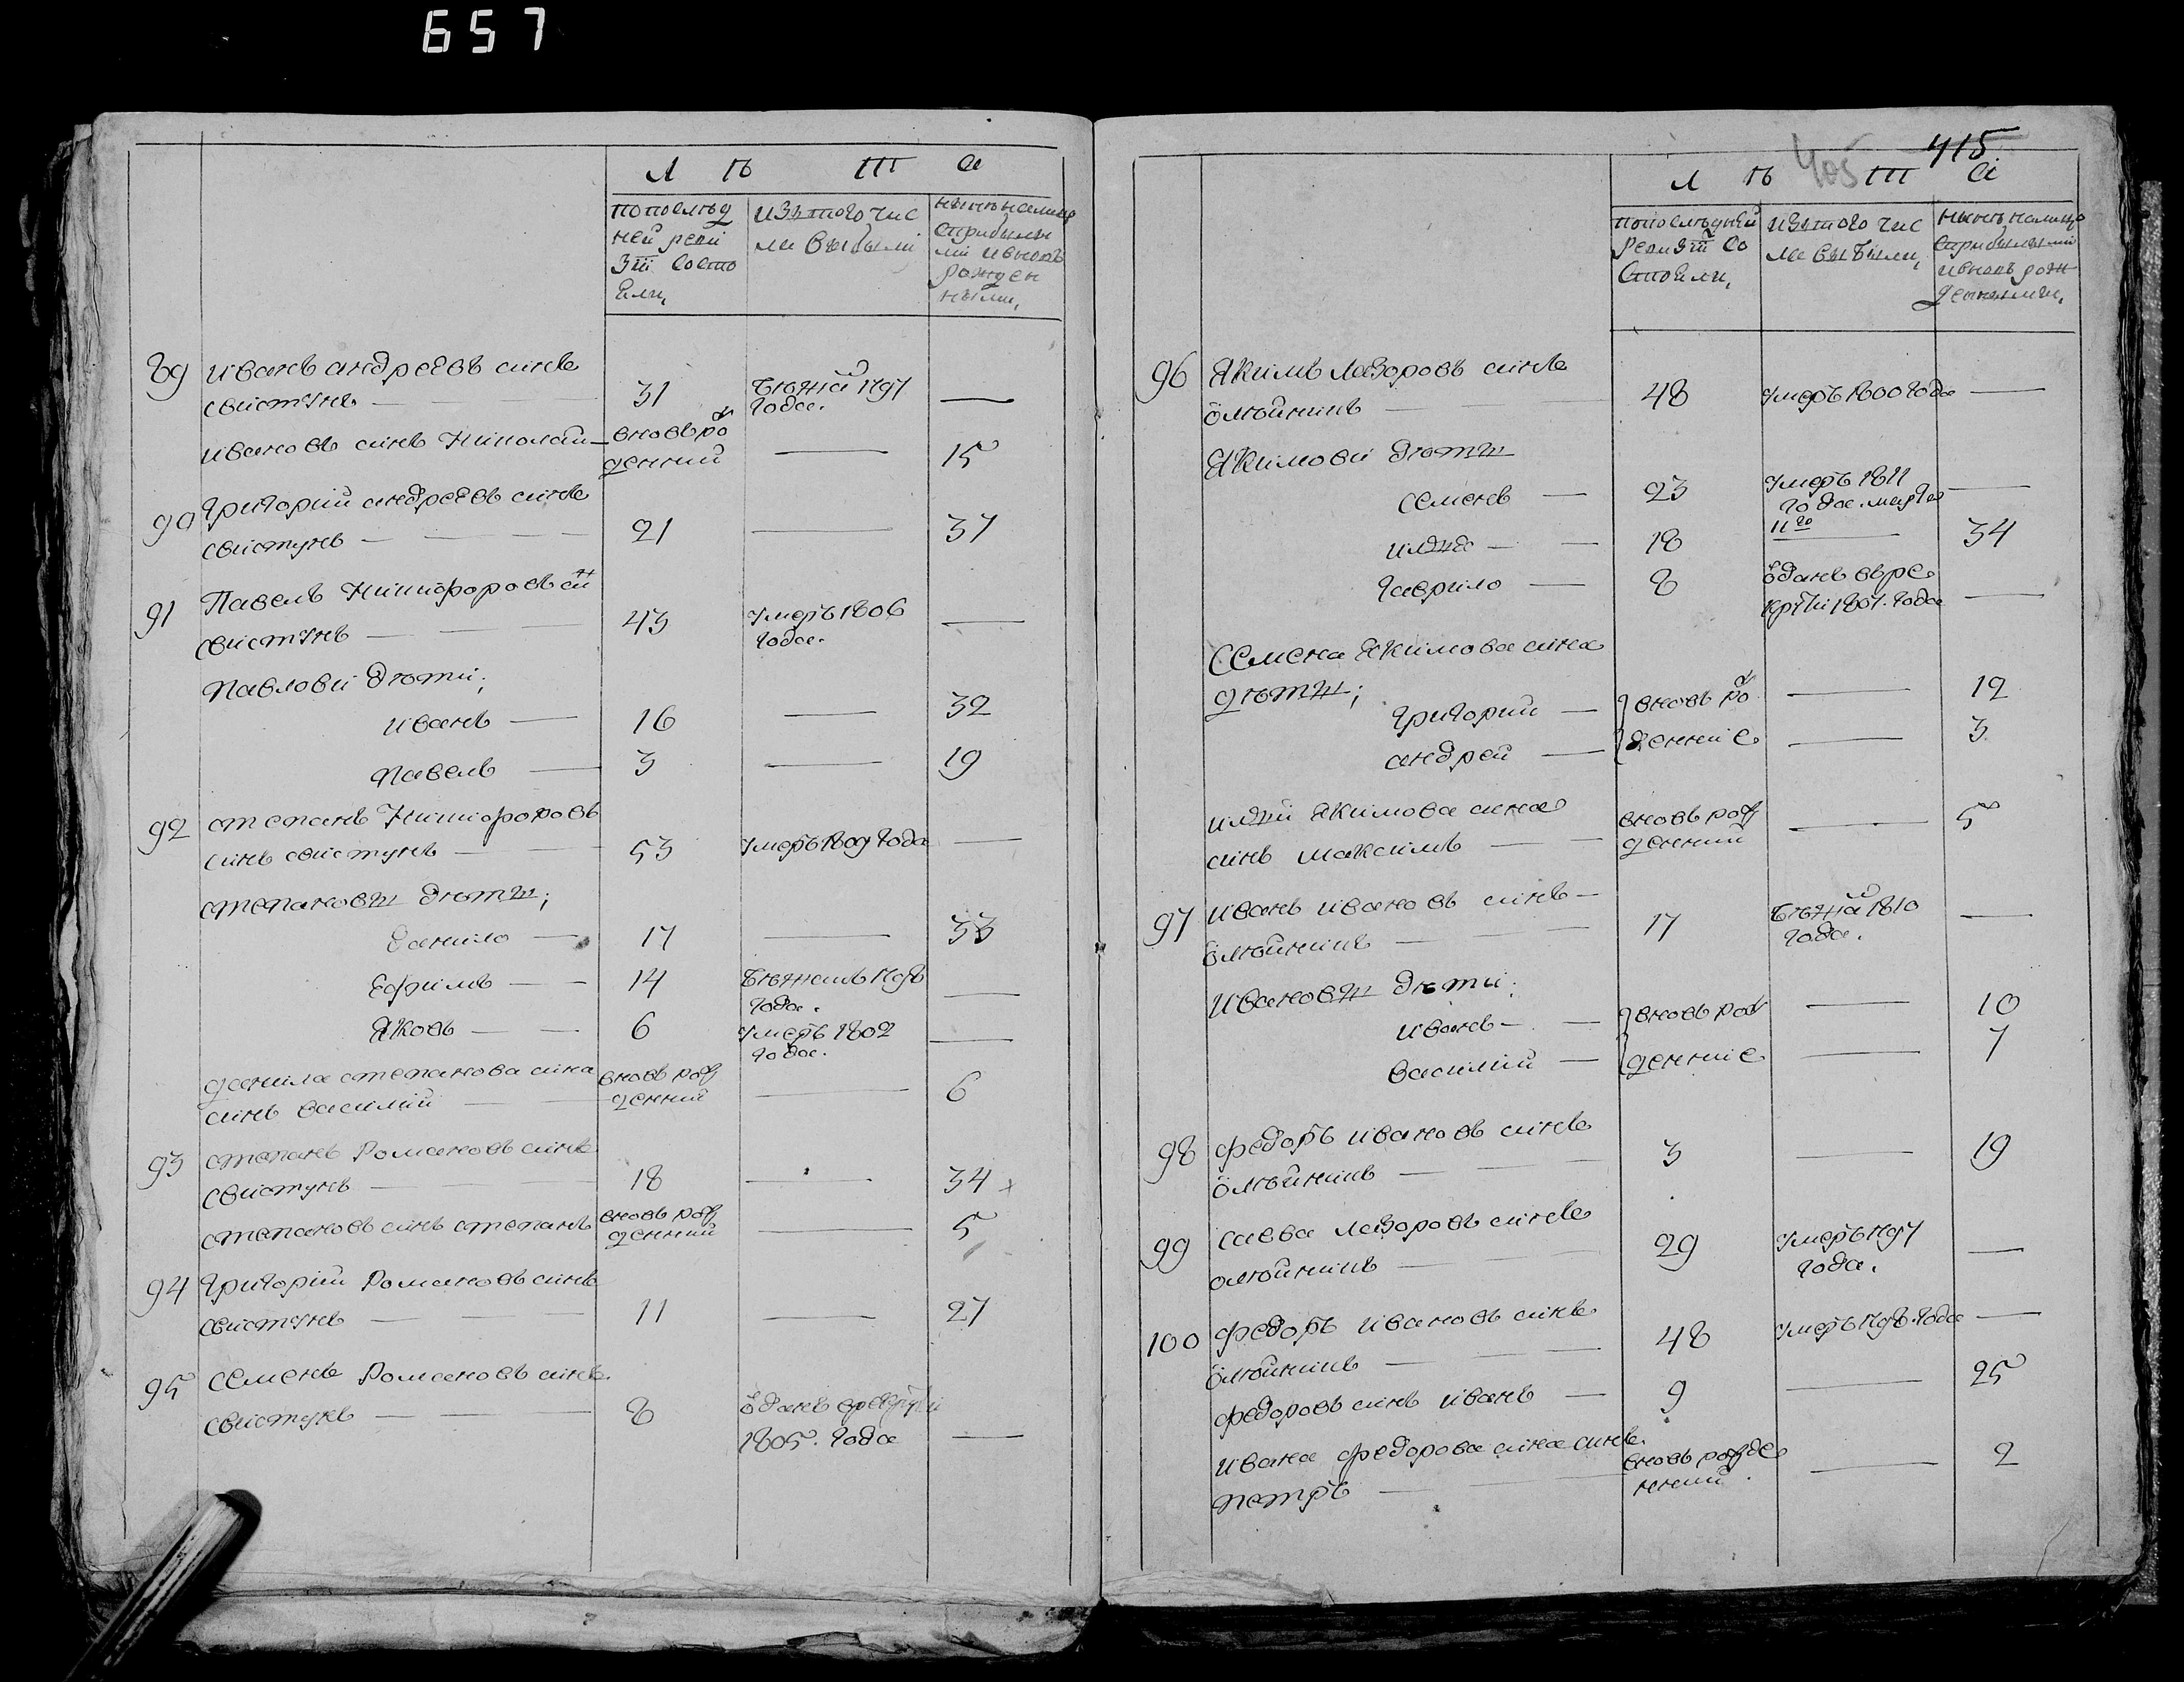 657
Л Ѣ Т А
попослѣд
ней реви
зіи состо
яли,
изътого чис
ла выбыли
нынѣ налице
сприбылы
ми ивновь
рожден
ными,
89 иванъ андреевъ синъ
свистунъ — 31 бѣжалъ 1797 года. —
ивановъ синъ николай — вновь рож
денний — 15
90 григорий андреевъ синъ
свистунъ — 21 — 37
91 Павелъ никифоровъ синъ
свистунъ — 43 умеръ 1806
года. —
павлови дѣти;
иванъ — 16 — 32
павелъ — 3 — 19
92 степанъ никифоровъ
синъ свистунъ — 53 умеръ 1809 года —
степанови дѣти;
данило — 17 — 33
Ефимъ — 14 бѣжалъ 1798
года. —
Яковъ — 6 умеръ 1802
года. —
данила степанова сина вновь рож
синъ василий — денний — 6
93 степанъ Романовъ синъ
свистунъ — 18 — 34
степановъ синъ степанъ вновь рож
денний — 5
94 григорій Романовъ синъ
свистунъ — 11 — 27
95 семенъ Романовъ синъ
свистунъ — 8 одданъ врекруты
1805. года —
405 415
Л Ѣ Т А
попослѣдней
ревизіи со
стояли,
изътого чис
ла выбыли,
нынѣ налице
сприбылыми
ивновь рож
денными,
96 Якимъ лазоровъ синъ
олѣйникъ — 48 умеръ 1800 года —
Якимови дѣти
семенъ — 23 умеръ 1811
года. марта
11го —
илия — 18 — 34
гаврило — 8 одданъ вре
крути 1807. года —
Семена Якимова сина
дѣти;
григорий — вновь рож — 12
андрей — денние — 3
илии Якимова сина вновь рож
синъ максимъ — денний — 5
97 иванъ ивановъ синъ —
олѣйникъ — 17 бѣжалъ 1810
года. —
Иванови дѣти;
иванъ — вновь рож — 10
василий — денние — 7
98 федоръ ивановъ синъ
олѣйникъ — 3 — 19
99 савва лазоровъ синъ
олѣйникъ — 29 умеръ 1797
года. —
100 федоръ ивановъ синъ
олѣйникъ — 48 умеръ 1798. года —
федоровъ синъ иванъ — 9 — 25
ивана федорова сина синъ вновь рожде
петръ — нний — 2